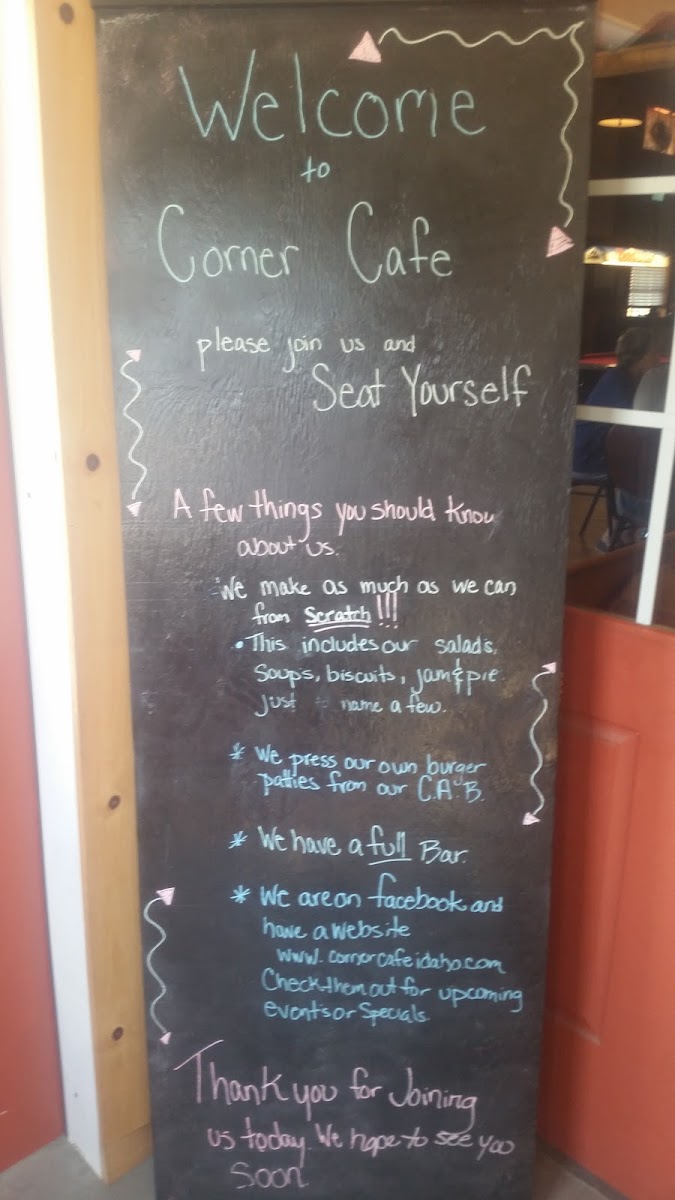 Welcome
to
Corner Cafe
please join us and
Seat Yourself
A few things you should know
about us.
We make as much as we can
from Scratch!!!
• This includes our salads,
Soups, biscuits, jam & pie
just name a few.
* We press our own burger
patties from our C.A.B.
* We have a full Bar.
* We are on facebook and
have a website
www.cornercafeidaho.com
Check them out for upcoming
events or Specials.
Thank you for Joining
us today. We hope to see you
Soon